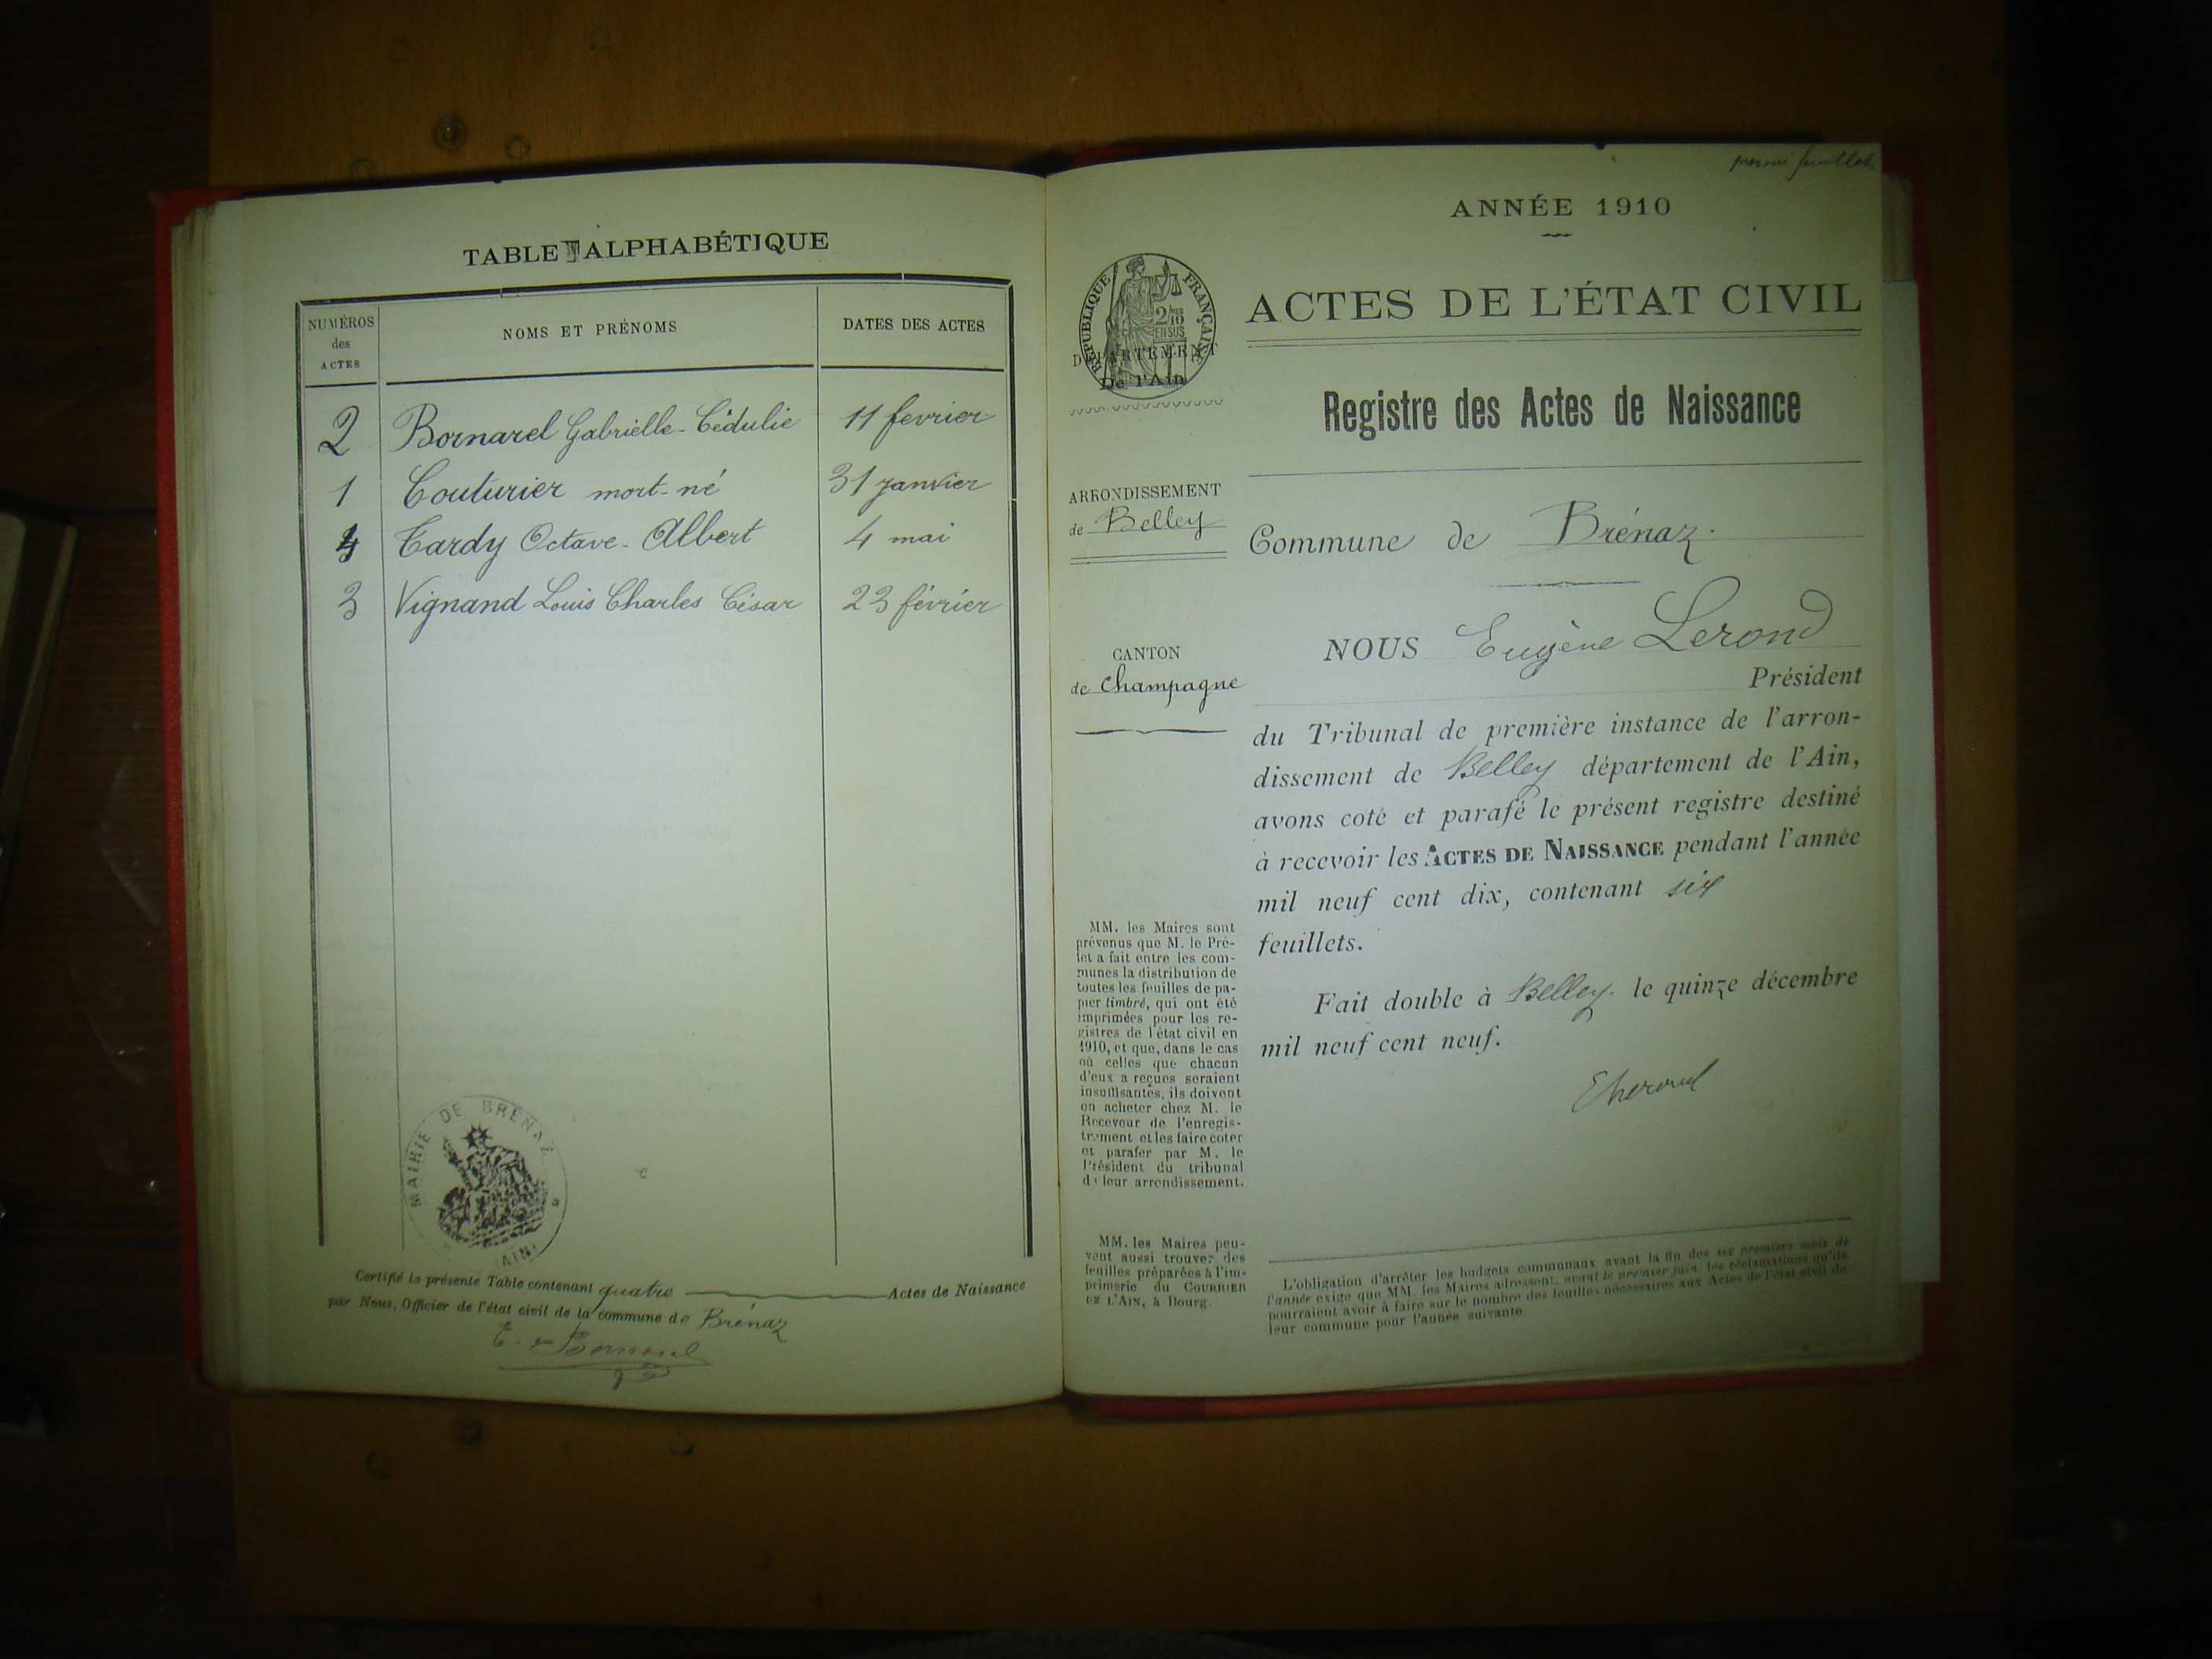 TABLE ALPHABÉTIQUE
NUMÉROS
des
ACTES
NOMS ET PRÉNOMS
DATES DES ACTES
2 Bornarel Gabrielle-Cédulie 11 fevrier
1 Couturier mort-né 31 janvier
4 Tardy Octave-Albert 4 mai
3 Vignand Louis Charles César 23 février
MAIRIE DE BRÉNAZ
(AIN)
Certifié la présente Table contenant quatre Actes de Naissance
par Nous, Officier de l'état civil de la commune de Brénaz
ANNÉE 1910
RÉPUBLIQUE FRANÇAISE
2/10
EN SUS
DÉPARTEMENT
De l'Ain
ACTES DE L'ÉTAT CIVIL
Registre des Actes de Naissance
ARRONDISSEMENT
de Belley
Commune de Brénaz.
CANTON
de Champagne
NOUS Eugène Lerond
Président
du Tribunal de première instance de l'arron-
dissement de Belley département de l'Ain,
avons coté et parafé le présent registre destiné
à recevoir les ACTES DE NAISSANCE pendant l'année
mil neuf cent dix, contenant six
feuillets.
Fait double à Belley. le quinze décembre
mil neuf cent neuf.
MM. les Maires sont
prévenus que M. le Pré-
fet a fait entre les com-
munes la distribution de
toutes les feuilles de pa-
pier timbré, qui ont été
imprimées pour les re-
gistres de l'état civil en
1910, et que, dans le cas
où celles que chacun
d'eux a reçues seraient
insuffisantes, ils doivent
en acheter chez M. le
Receveur de l'enregis-
trement et les faire coter
et parafer par M. le
Président du tribunal
de leur arrondissement.
MM. les Maires peu-
vent aussi trouver des
feuilles préparées à l'im-
primerie du COURRIER
DE L'AIN, à Bourg.
L'obligation d'arrêter les budgets communaux avant la fin des six premiers mois de
l'année exige que MM. les Maires adressent, avant le premier juin, les réclamations qu'ils
pourraient avoir à faire sur le nombre des feuilles nécessaires aux Actes de l'état civil de
leur commune pour l'année suivante